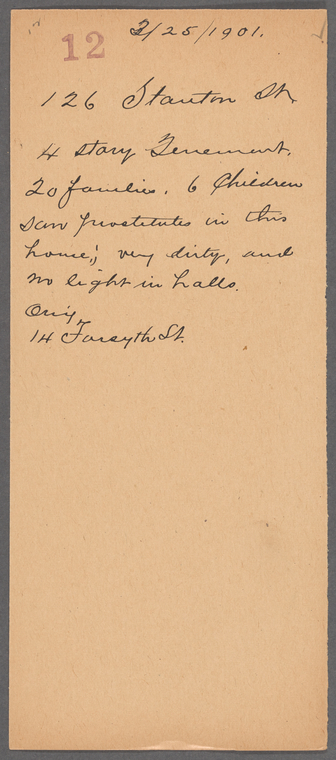 12
2/25/1901.
126 Stanton St.
4 story Tenement.
20 families. 6 Children
saw prostitutes in this
home; very dirty, and
no light in halls.
14 Forsyth St.